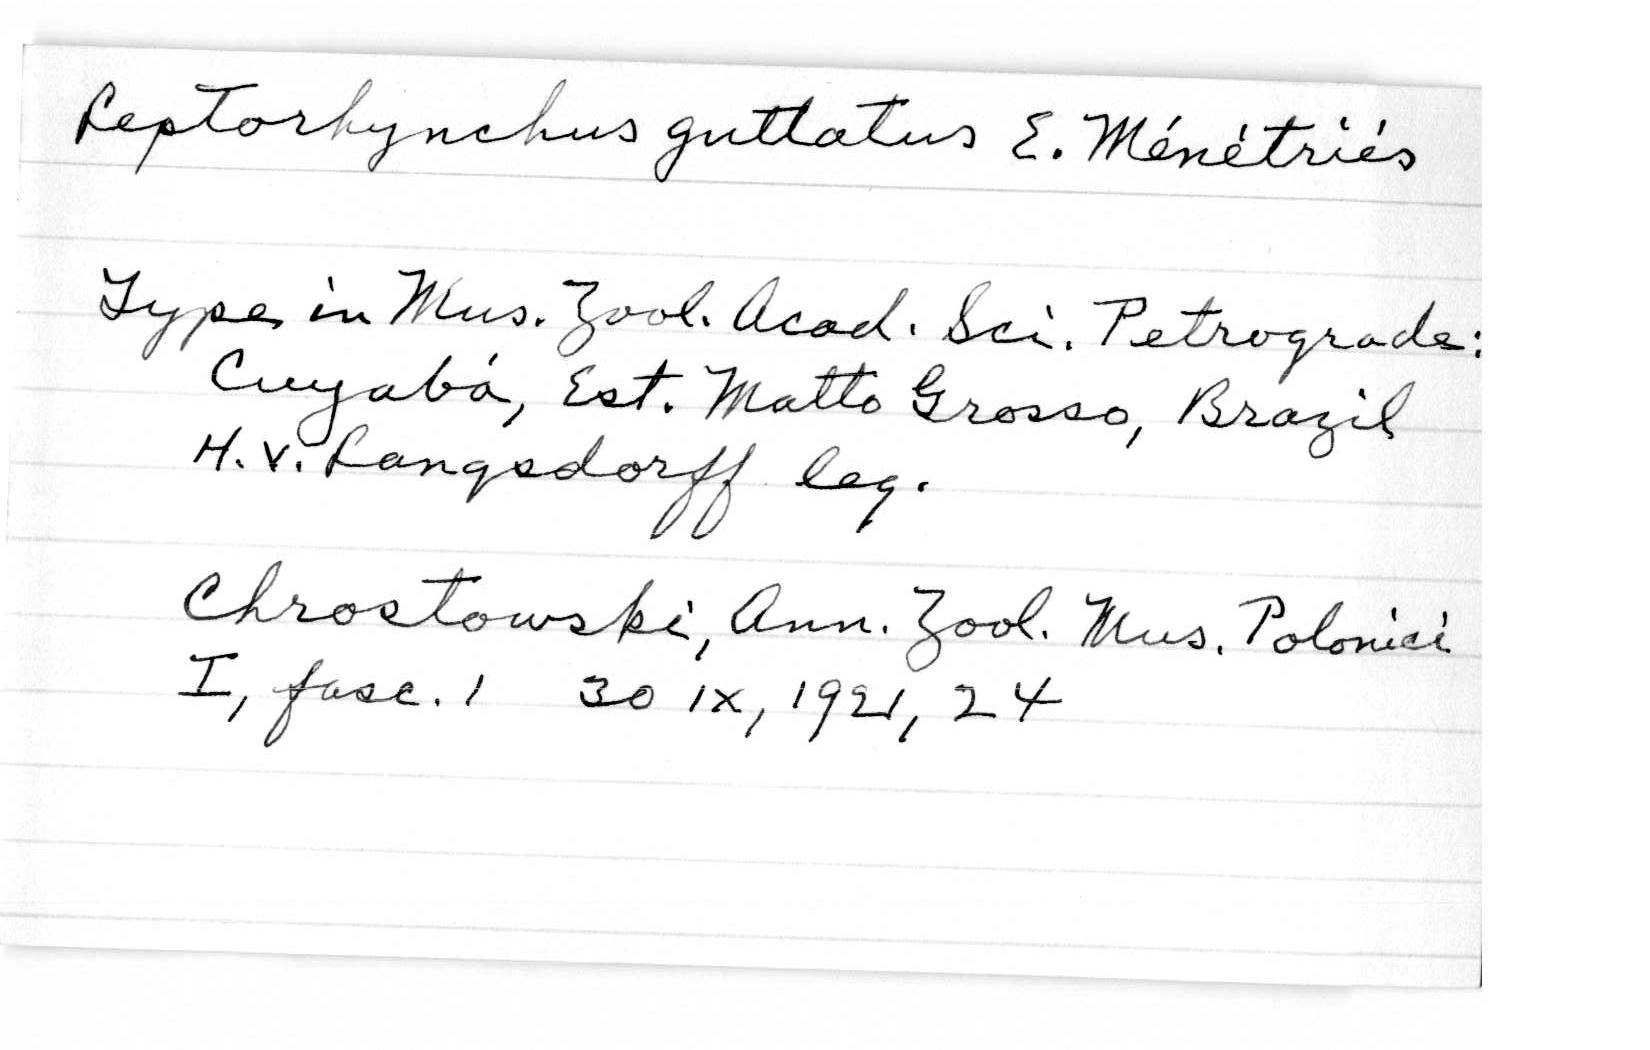 Leptorhynchus guttatus E. Ménétriés
Type in Mus. Zool. Acad. Sci. Petrograde:
Cuyabá, Est. Matto Grosso, Brazil
H. v. Langsdorff leg.
Chrostowski, Ann. Zool. Mus. Polonici
I, fasc. 1 30 IX, 1921, 24